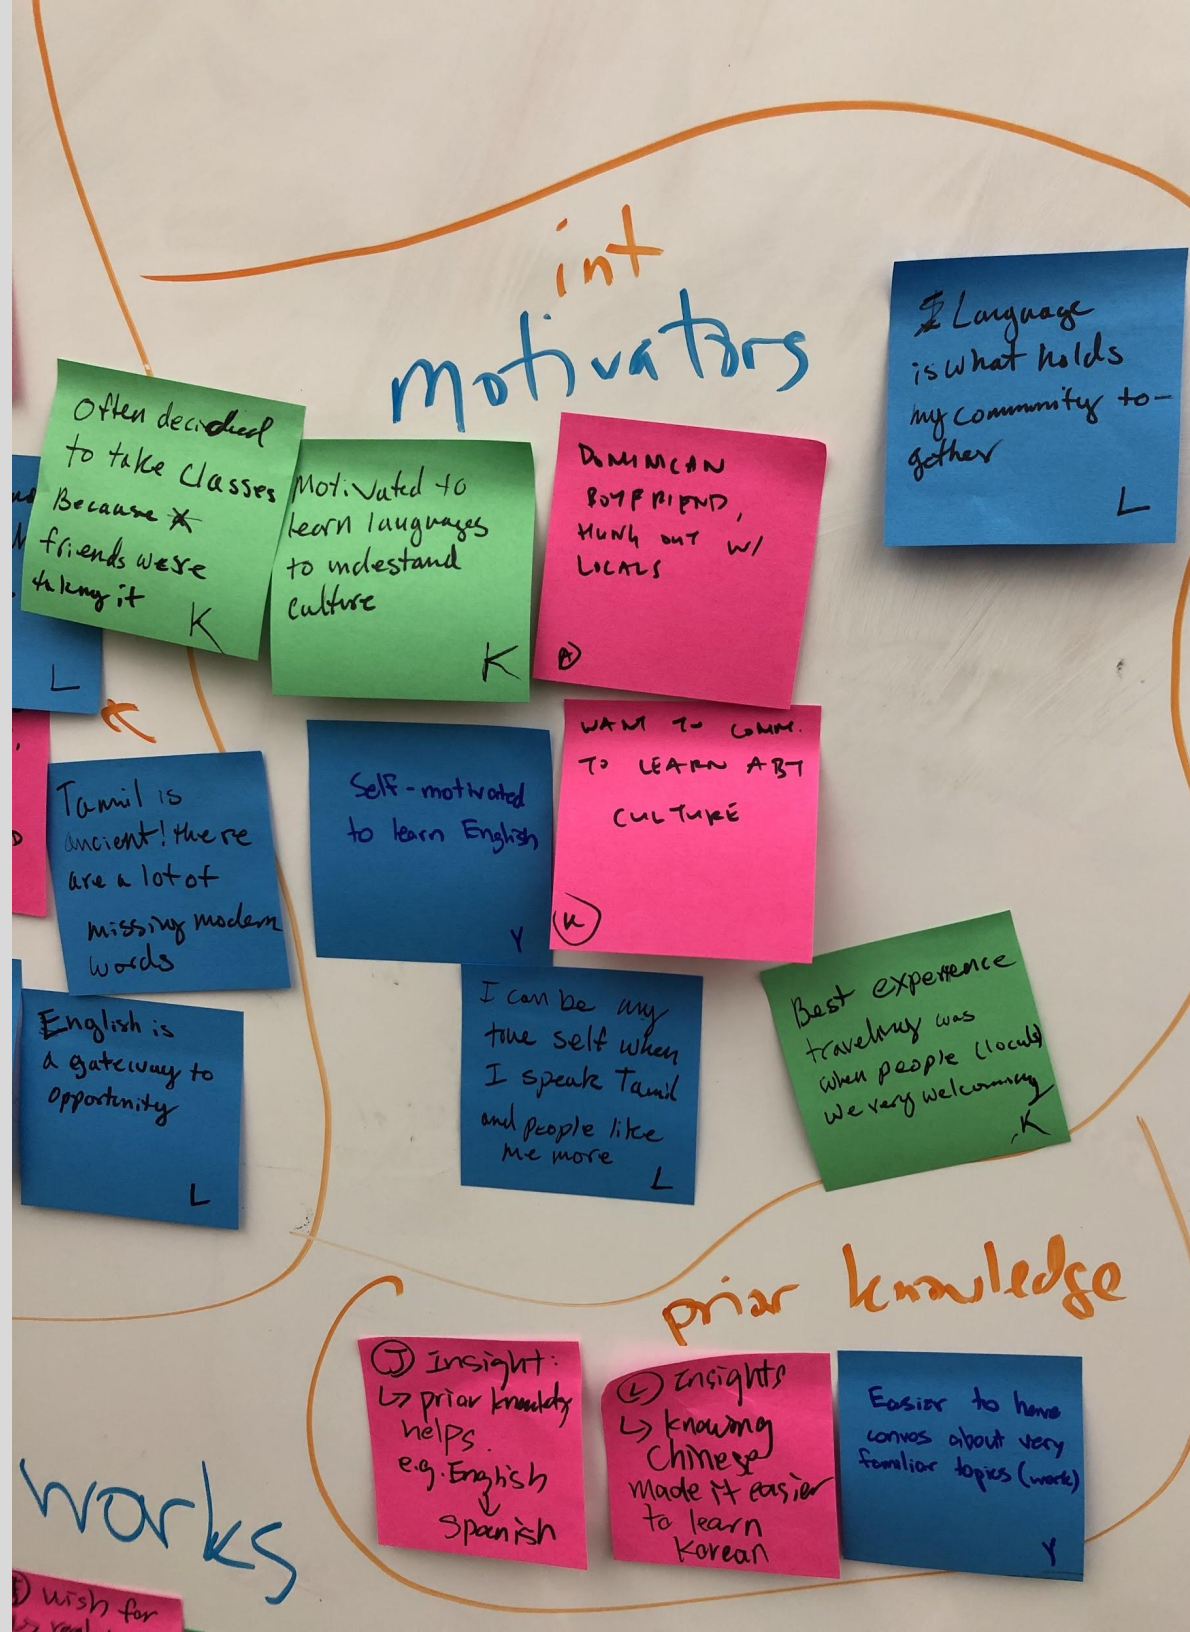 int
motivators
Language
is what holds
my community to-
gether
L
Often decided
to take classes
Because
friends were
taking it
K
Motivated to
learn languages
to undestand
culture
K
DOMINICAN
BOYFRIEND,
HUNG OUT W/
LOCALS
A
L
Self-motivated
to learn English
Y
WANT TO COMM.
TO LEARN ABT
CULTURE
K
Tamil is
ancient! there
are a lot of
missing modern
words
English is
a gateway to
opportunity
L
I can be my
true self when
I speak Tamil
and people like
me more
L
Best experience
traveling was
when people (locals)
we very welcoming
K
prior knowledge
J Insight:
↳ prior knowledge
helps.
e.g. English
↓
Spanish
L Insights
↳ knowing
Chinese
made it easier
to learn
Korean
Easier to have
convos about very
familiar topics (work)
Y
works
wish for